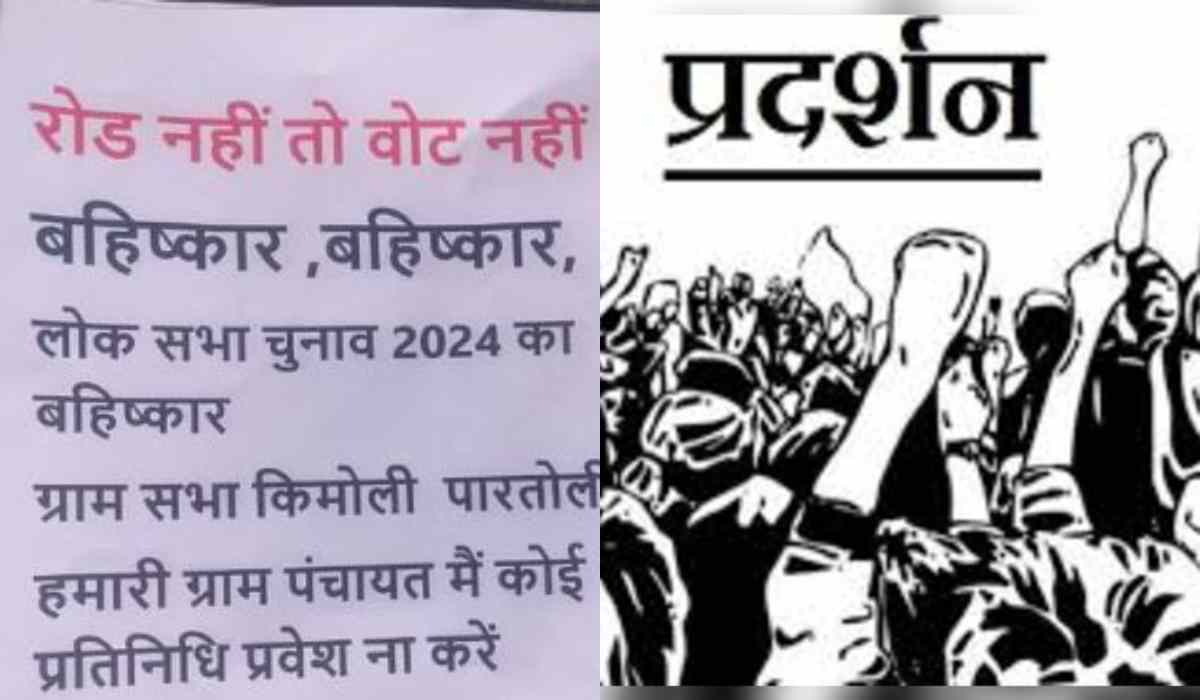 रोड नहीं तो वोट नहीं
बहिष्कार ,बहिष्कार,
लोक सभा चुनाव 2024 का
बहिष्कार
ग्राम सभा किमोली पारतोली
हमारी ग्राम पंचायत मैं कोई
प्रतिनिधि प्रवेश ना करें
प्रदर्शन